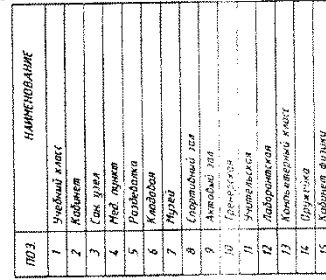 ПОЗ. НАИМЕНОВАНИЕ
1 Учебный класс
2 Кабинет
3 Сан. узел
4 Мед. пункт
5 Раздевалка
6 Кладовая
7 Музей
8 Спортивный зал
9 Актовый зал
10 Тренерская
11 Учительская
12 Лаборантская
13 Компьютерный класс
14 Оружейка
15 Кабинет физики